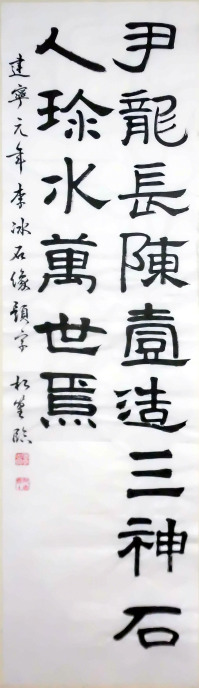 尹龍長陳壹造三神石
人珎水萬世焉
建寧元年李冰石像題字 松筌臨